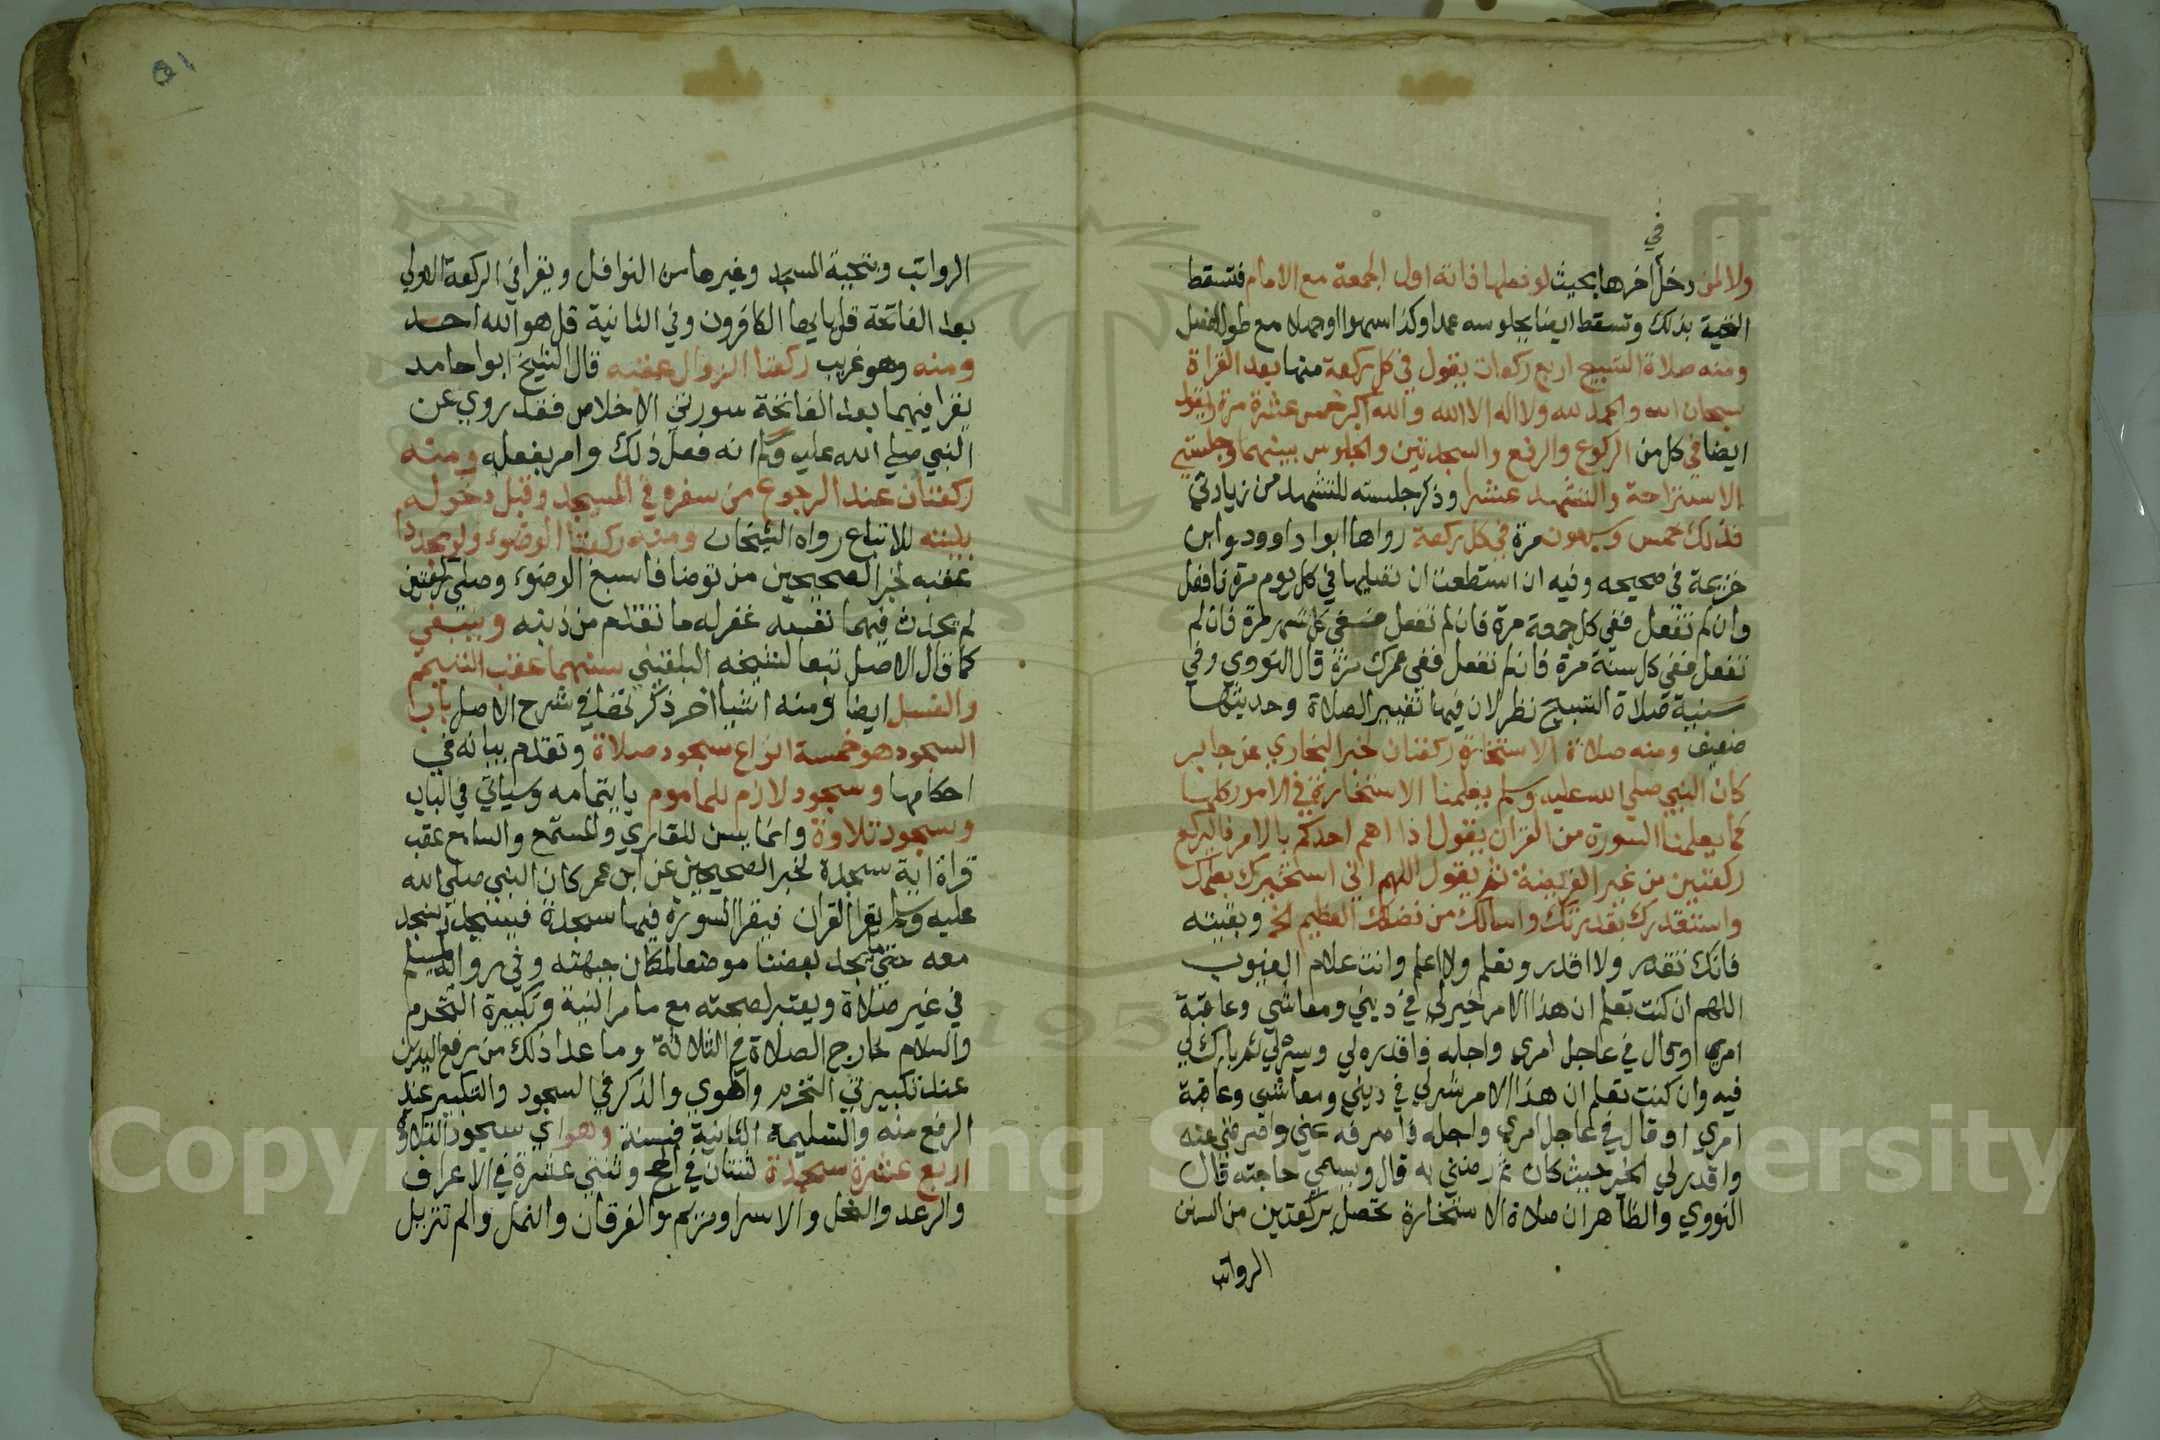 في
ولا لمن دخل اخرها بحيث لو فعلها فاته اول الجمعة مع الامام فتسقط
التحية بذلك وتسقط ايضا بجلوسه عمدا وكذا سهوا او جهلا مع طول الفصل
ومنه صلاة التسبيح اربع ركعات يقول في كل ركعة منها بعد القراة
سبحان الله والحمد لله ولا اله الا الله والله اكبر خمس عشرة مرة ويقول
ايضا في كل من الركوع والرفع والسجدتين والجلوس بينهما وجلستي
الاستراحة والتشهد عشرا وذكر جلسته للتشهد من زيادتي
فذلك خمس وسبعون مرة في كل ركعة رواها ابوا داوود وابن
خزيمة في صحيحه وفيه ان استطعت ان تصليها في كل يوم مرة فافعل
وان لم تفعل ففي كل جمعة مرة فان لم تفعل ففي كل شهر مرة فان لم
تفعل ففي كل سنة مرة فان لم تفعل ففي عمرك مرة قال النووي وفي
سنية صلاة التسبيح نظر لان فيها تغيير الصلاة وحديثها
ضعيف ومنه صلاة الاستخارة ركعتان لخبر البخاري عن جابر
كان النبي صلى الله عليه وسلم يعلمنا الاستخارة في الامور كلها
كما يعلمنا السورة من القران يقول اذا اهم احدكم بالامر فاليركع
ركعتين من غير الفريضة ثم يقول اللهم اني استخيرك بعلمك
واستقدرك بقدرتك واسالك من فضلك العظيم الخ وبقيته
فانك تقدر ولا اقدر وتعلم ولا اعلم وانت علام الغيوب
اللهم ان كنت تعلم ان هذا الامر خير لي في ديني ومعاشي وعاقبة
امري او قال في عاجل امري واجله فاقدره لي ويسره لي ثم بارك لي
فيه وان كنت تعلم ان هذا الامر شر لي في ديني ومعاشي وعاقبة
امري او قال في عاجل امري واجله فاصرفه عني واصرفني عنه
واقدر لي الخير حيث كان ثم رضني به قال ويسمي حاجته قال
النووي والظاهر ان صلاة الاستخارة تحصل بركعتين من السنن
الرواتب
٥١
الرواتب وبتحية المسجد وغيرها من النوافل ويقرا في الركعة الاولي
بعد الفاتحة قل يا ايها الكافرون وفي الثانية قل هو الله احد
ومنه وهو غريب ركعتا الزوال عقبه قال الشيخ ابوا حامد
يقرا فيهما بعد الفاتحة سورتي الاخلاص فقد روي عن
النبي صلى الله عليه وسلم انه فعل ذلك وامر بفعله ومنه
ركعتان عند الرجوع من سفره في المسجد وقبل دخوله
بيته للاتباع رواه الشيخان ومنه ركعتا الوضوء ولو مجددا
عقبه لخبر الصحيحين من توضا فاسبغ الوضوء وصلى ركعتين
لم يحدث فيهما نفسه غفر له ما تقدم من ذنبه وينبغي
كما قال الاصل تبعا لشيخه البلقيني سنتهما عقب التيمم
والغسل ايضا ومنه اشيا اخر ذكر تها في شرح الاصل باب
السجود هو خمسة انواع سجود صلاة وتقدم بيانه في
احكامها وسجود لازم للماموم يا يتمامه وسياتي في الباب
وسجود تلاوة وانما يسن للقاري والمستمع والسامع عقب
قراة اية سجدة لخبر الصحيحين عن ابن عمر كان النبي صلى الله
عليه وسلم يقرا القران فيقرا السورة فيها سجدة فيسجد ونسجد
معه حتي ما يجد بعضنا موضعا لمكان جبهته وفي رواية لمسلم
في غير صلاة ويعتبر لصحته مع ما مر النية وتكبيرة التحرم
والسلام خارج الصلاة في الثلاثة وما عدا ذلك من رفع اليدين
عند تكبيرتي التحرم والهوي والذكر في السجود والتكبير عند
الرفع منه والتسليمة الثانية فسنة وهو اي سجود التلاوة
اربع عشرة سجدة ثنتان في الحج وثنتي عشرة في الاعراف
والرعد والنحل والاسرا ومريم والفرقان والنمل والم تنزيل
Copyright © King Saud University
195